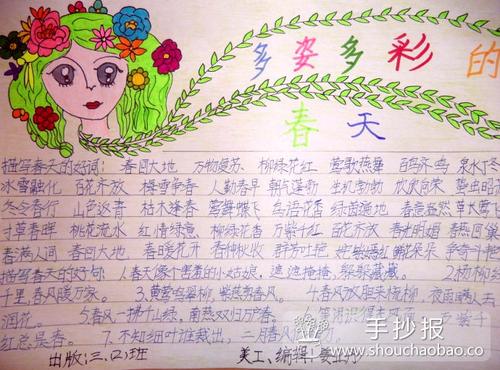 多姿多彩的
春天
描写春天的好词：春回大地 万物复苏 柳绿花红 莺歌燕舞 百鸟齐鸣 泉水丁冬
冰雪融化 百花齐放 梅雪争春 人勤春早 朝气蓬勃 生机勃勃 欣欣向荣 惊虫明
冬令春行 山色返青 枯木逢春 莺舞蝶飞 鸟语花香 绿茵遍地 春意盎然 草长莺飞
寸草春晖 桃花流水 红情绿意 柳绿花香 万紫千红 百花齐放 春光明媚 春回
春满人间 春回大地 春暖花开 春种秋收 群芳吐艳 姹紫嫣红 朵朵 争奇斗艳
描写春天的好句 1.春天像个害羞的小姑娘，遮遮掩掩，躲躲藏藏。 2.杨柳
千里，春风暖万家。 3.黄莺鸣翠柳，紫燕剪春风。 4.春风放胆来梳柳，夜雨瞒人
润花。 5.春风一拂千山绿，南燕双归万户春。 等闲识得东风面，万紫千
红总是春。 7.不知细叶谁裁出，二月春风
出版：三.(2)班 美工、编辑：
手抄报
www.shouchaobao.co